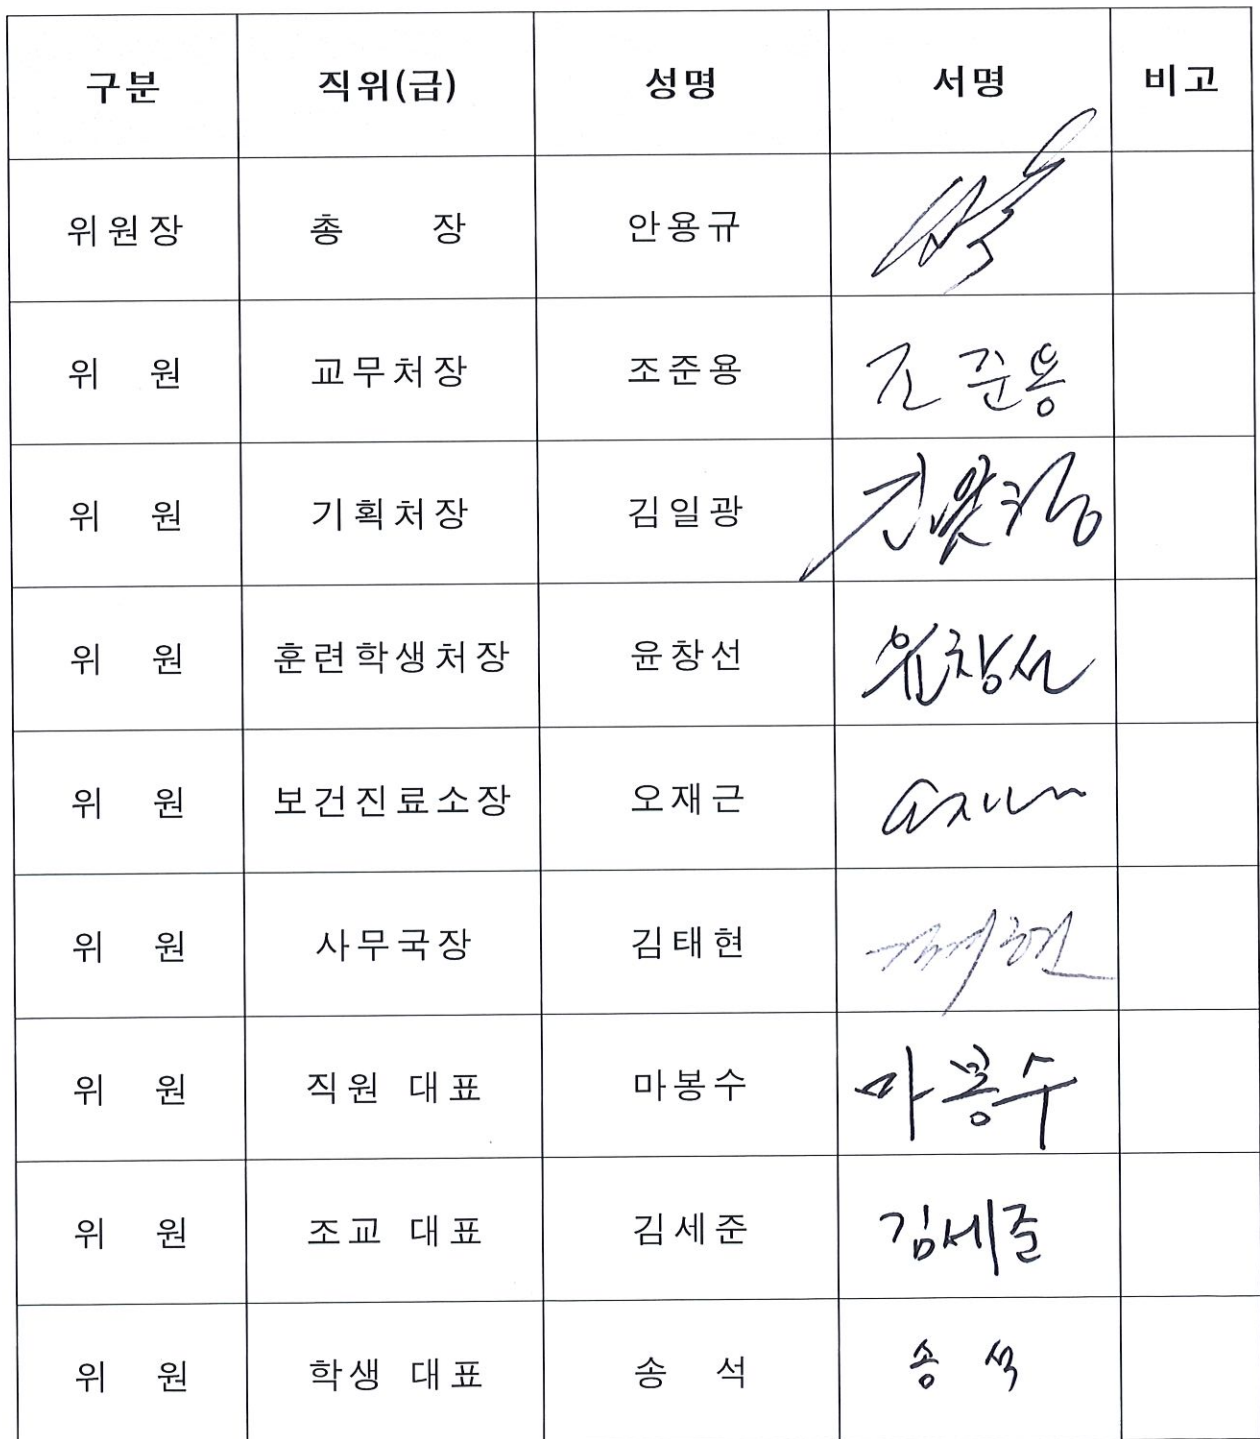 구분 직위(급) 성명 서명 비고
위원장 총 장 안용규
위 원 교무처장 조준용 조준용
위 원 기획처장 김일광
위 원 훈련학생처장 윤창선 윤창선
위 원 보건진료소장 오재근
위 원 사무국장 김태현
위 원 직원 대표 마봉수 마봉수
위 원 조교 대표 김세준 김세준
위 원 학생 대표 송 석 송 석